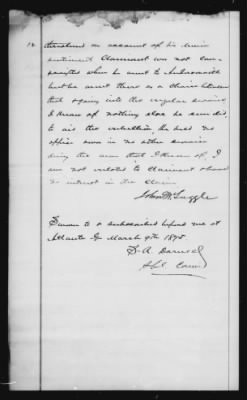 threatened on account of his Union
sentiment Claimant was not con-
scripted when he went to
but he went there as a choice between
that & going into the regular service
I know of nothing else he ever did,
to aid the rebellion, he held no
office was in no other service
during the war that I know of. I
am not related to claimant & have
no interest in his claim
John W Tuggle
Sworn to & subscribed before me at
Atlanta Ga March 9th 1875
D. A.
Spl. Com.